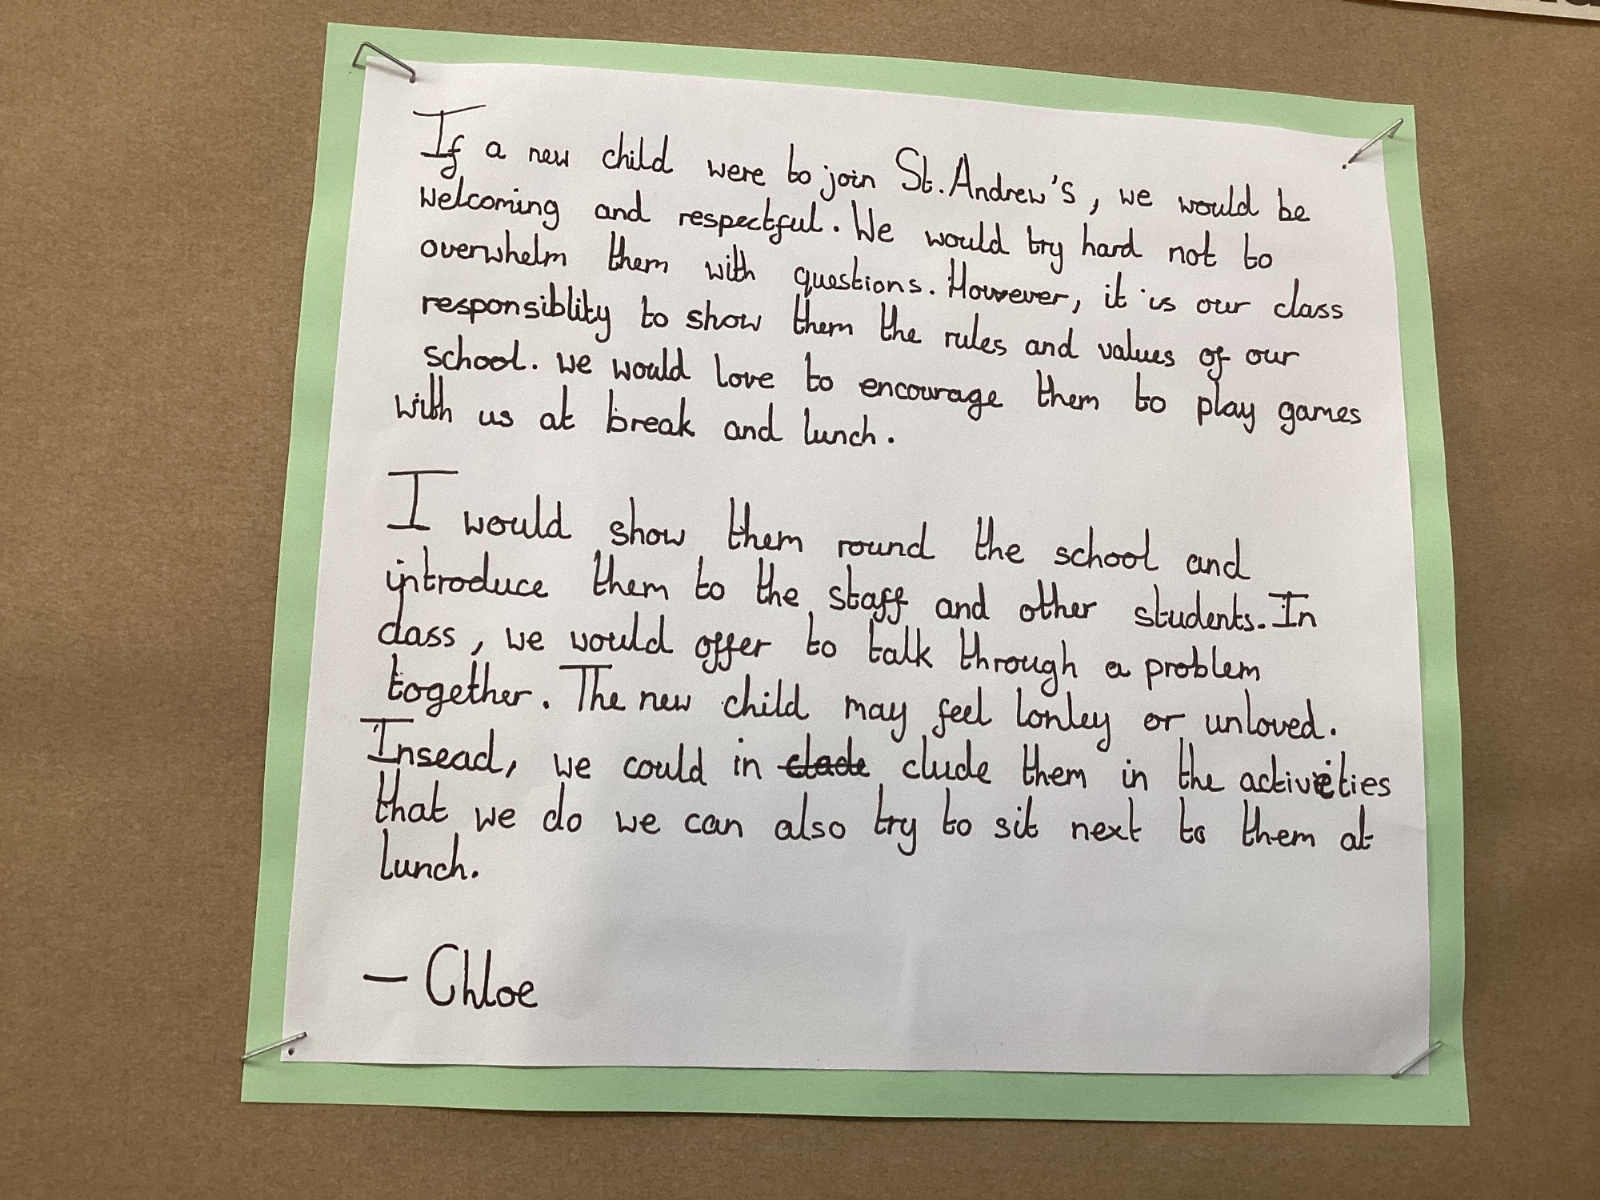 If a new child were to join St. Andrew's, we would be
welcoming and respectful. We would try hard not to
overwhelm them with questions. However, it is our class
responsiblity to show them the rules and values of our
school. we would love to encourage them to play games
with us at break and lunch.
I would show them round the school and
introduce them to the staff and other students. In
class, we would offer to talk through a problem
together. The new child may feel lonley or unloved.
Insead, we could in clude them in the activities
that we do we can also try to sit next to them at
lunch.
— Chloe